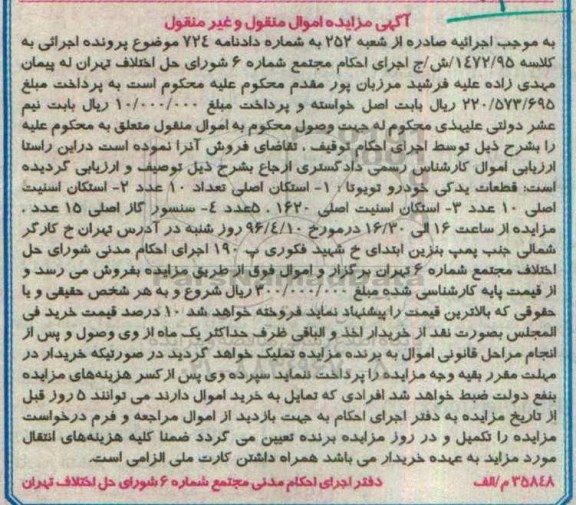 آگهی مزایده اموال منقول و غیر منقول
به موجب اجرائیه صادره از شعبه ۲۵۲ به شماره دادنامه ۷۲۴ موضوع پرونده اجرائی به
کلاسه ۱۴۷۲/۹۵/ش/ج اجرای احکام مجتمع شماره ۶ شورای حل اختلاف تهران له پیمان
مهدی زاده علیه فرشید مرزبان پور مقدم محکوم علیه محکوم است به پرداخت مبلغ
۲۲۰/۵۷۳/۶۹۵ ریال بابت اصل خواسته و پرداخت مبلغ ۱۰/۰۰۰/۰۰۰ ریال بابت نیم
عشر دولتی علیهذی محکوم له جهت وصول محکوم به اموال منقول متعلق به محکوم علیه
را بشرح ذیل توسط اجرای احکام توقیف . تقاضای فروش آنرا نموده است دراین راستا
ارزیابی اموال کارشناس رسمی دادگستری ارجاع بشرح ذیل توصیف و ارزیابی گردیده
است: قطعات یدکی خودرو تویوتا : ۱- استکان اصلی تعداد ۱۰ عدد ۲- استکان اسنیت
اصلی ۱۰ عدد ۳- استکان اسنیت اصلی ۱۶۲۰ ، ۵عدد ۴- سنسور گاز اصلی ۱۵ عدد .
مزایده از ساعت ۱۶ الی ۱۶/۳۰ درمورخ ۹۶/۴/۱۰ روز شنبه در آدرس تهران خ کارگر
شمالی جنب پمپ بنزین ابتدای خ شهید فکوری پ ۱۹۰ اجرای احکام مدنی شورای حل
اختلاف مجتمع شماره ۶ تهران برگزار و اموال فوق از طریق مزایده بفروش می رسد و
از قیمت پایه کارشناسی شده مبلغ ۳۰۰/۰۰۰/۰۰۰ ریال شروع و به هر شخص حقیقی و یا
حقوقی که بالاترین قیمت را پیشنهاد نماید فروخته خواهد شد ۱۰ درصد قیمت خرید فی
المجلس بصورت نقد از خریدار اخذ و الباقی ظرف حداکثر یک ماه از وی وصول و پس از
انجام مراحل قانونی اموال به برنده مزایده تملیک خواهد گردید در صورتیکه خریدار در
مهلت مقرر بقیه وجه مزایده را پرداخت ننماید سپرده وی پس از کسر هزینه‌های مزایده
بنفع دولت ضبط خواهد شد افرادی که تمایل به خرید اموال دارند می توانند ۵ روز قبل
از تاریخ مزایده به دفتر اجرای احکام به جهت بازدید از اموال مراجعه و فرم درخواست
مزایده را تکمیل و در روز مزایده برنده تعیین می گردد ضمنا کلیه هزینه‌های انتقال
مورد مزاید به عهده خریدار می باشد همراه داشتن کارت ملی الزامی است.
۳۵۸۴۸ م/الف دفتر اجرای احکام مدنی مجتمع شماره ۶ شورای حل اختلاف تهران